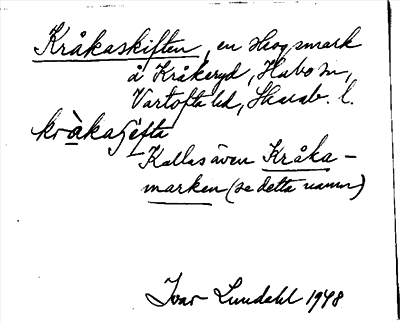 Kråkaskiften, en skogsmark
å Kråkeryd, Habo sn,
Vartofta hd, Skarab. l.
kràkaʃefta
Kallas även Kråka-
marken (se detta namn)
Ivar Lundahl 1948